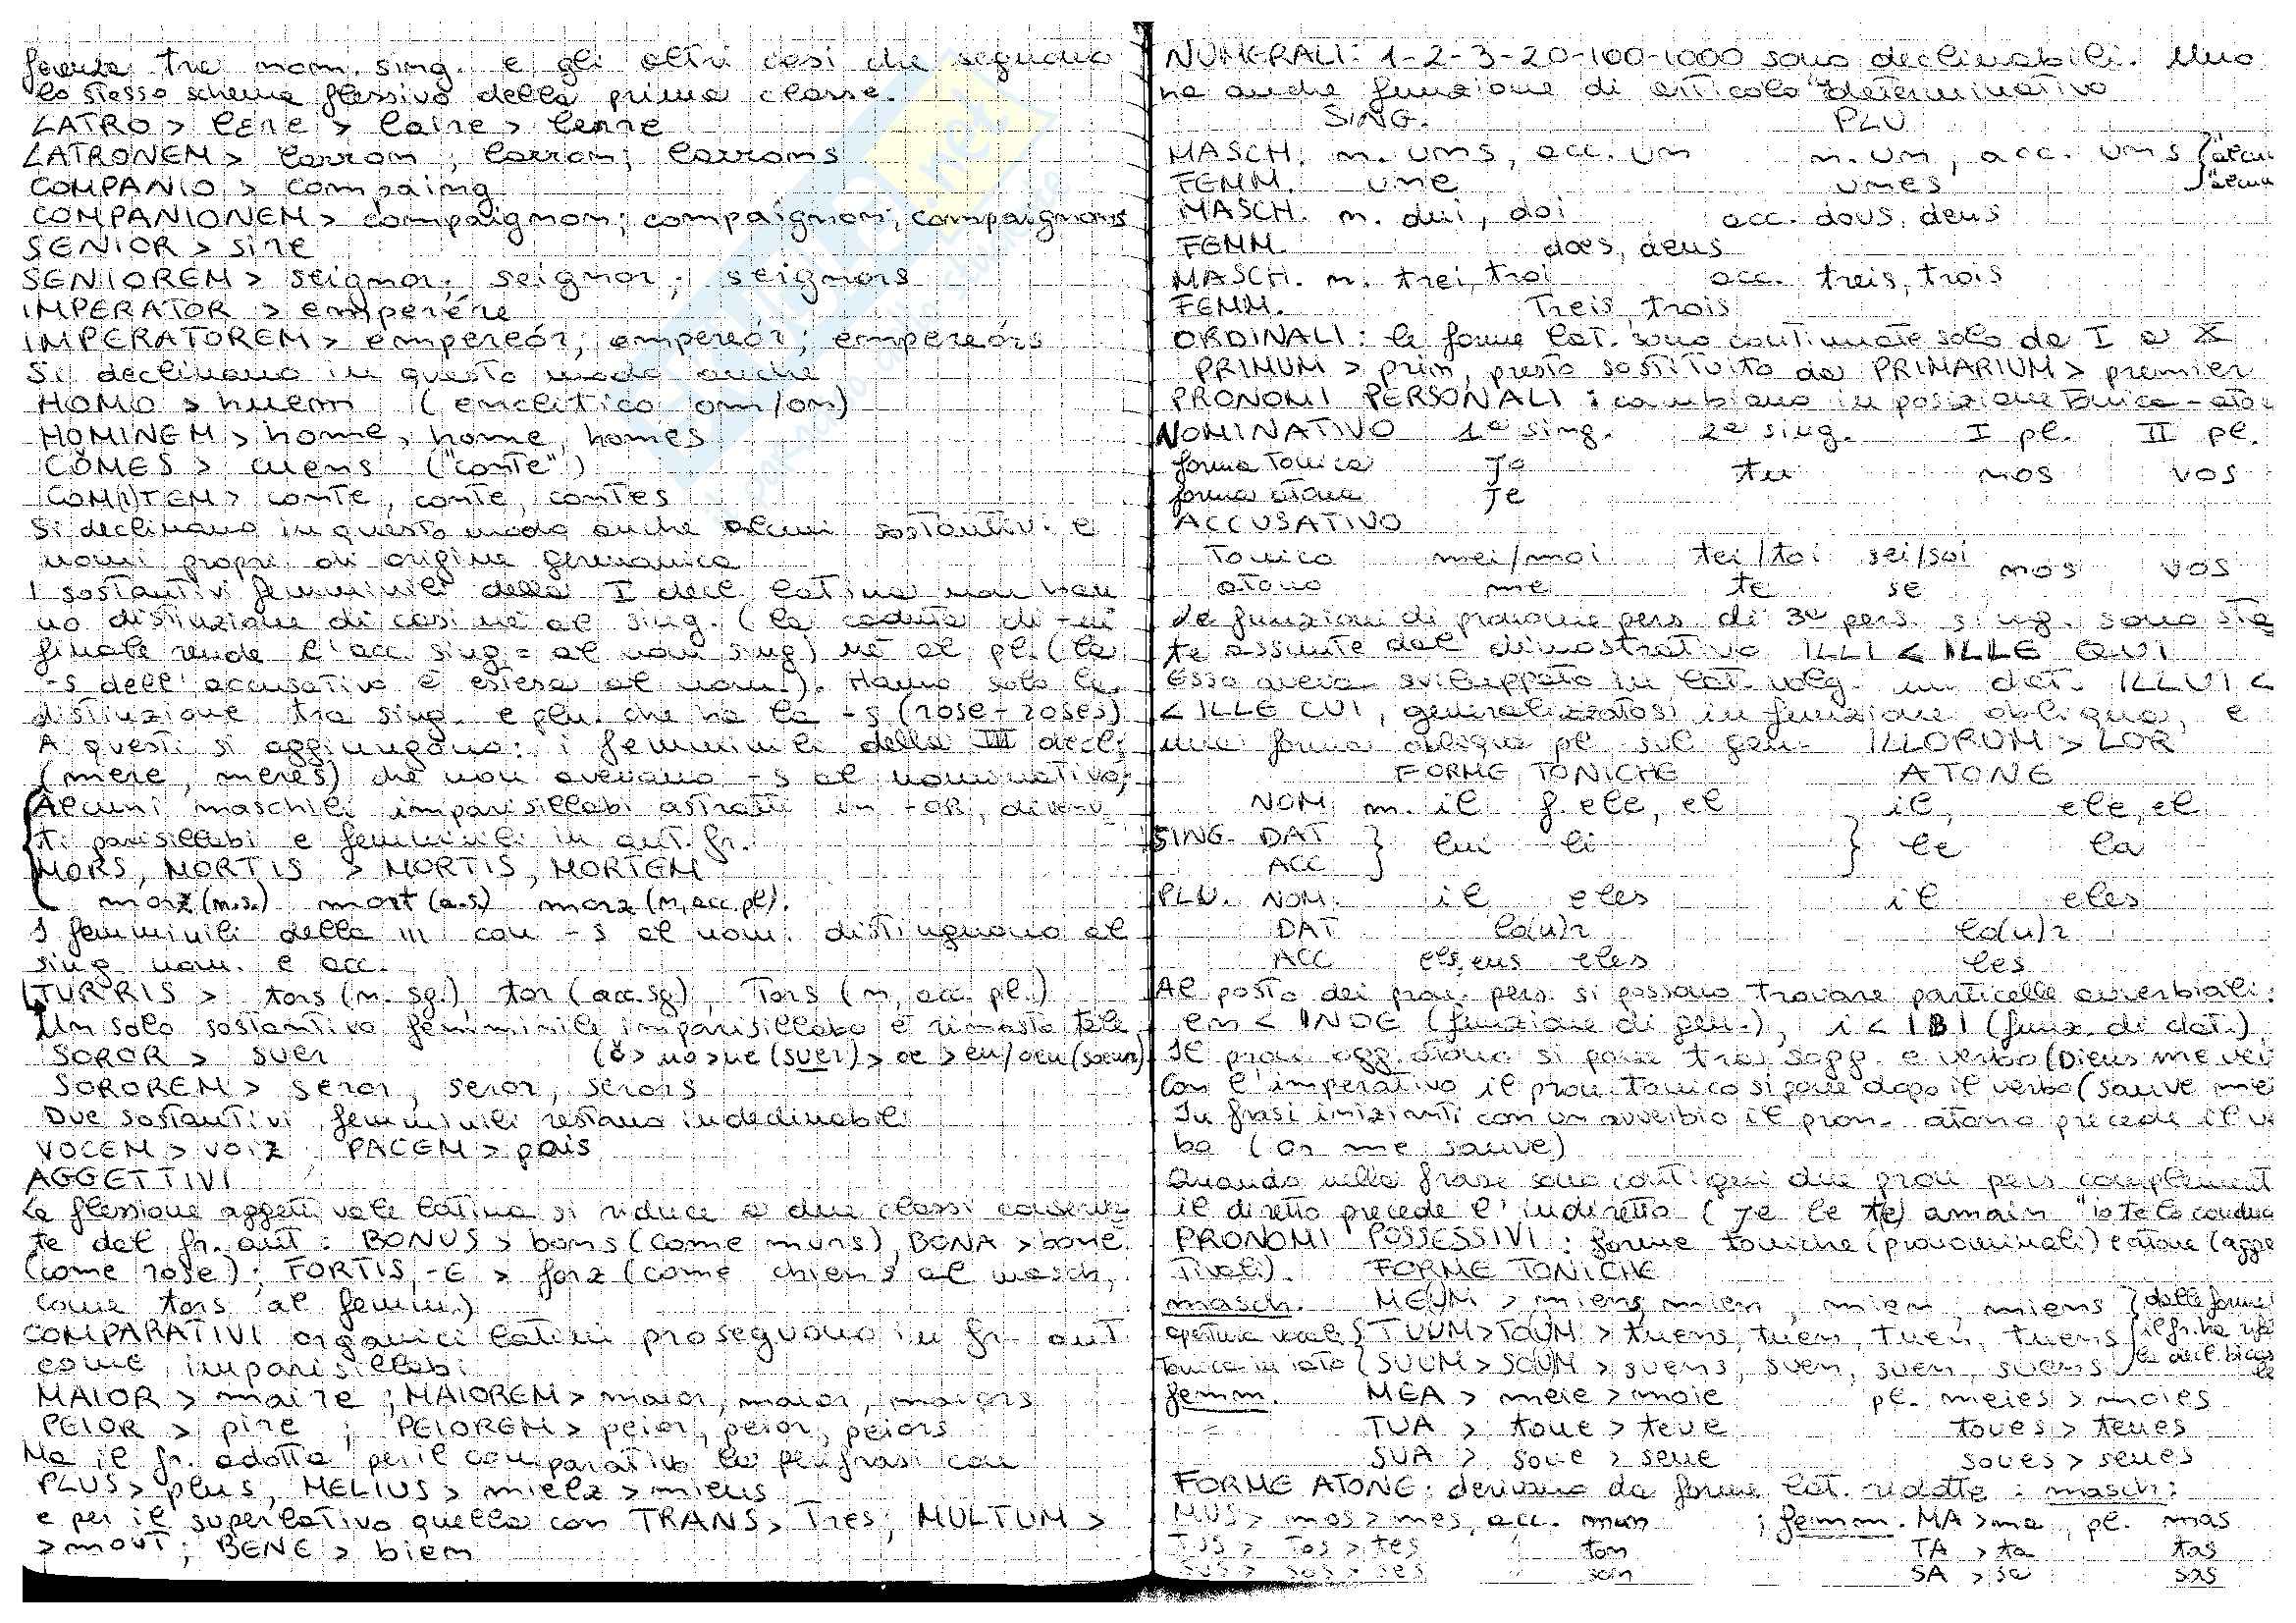 ferenza tra nom. sing. e gli altri casi che seguono
lo stesso schema flessivo della prima classe.
LATRO > lere > laire > lerre
LATRONEM > larron ; larron ; larrons
COMPANIO > compaing
COMPANIONEM > compaignon ; compaignon ; compaignons
SENIOR > sire
SENIOREM > seignor ; seignor ; seignors
IMPERATOR > emperére
IMPERATOREM > empereór ; empereór ; empereórs
Si declinano in questo modo anche
HOMO > huem (enclitico om/on)
HOMINEM > home, home, homes
CŎMES > cuens ("conte")
COM(I)TEM > conte, conte, contes
Si declinano in questo modo anche alcuni sostantivi e
nomi propri di origine germanica
I sostantivi femminili della I decl latina non han
no distinzione di casi né al sing. (la caduta di -m
finale rende l'acc. sing = al nom sing) né al pl. (la
-s dell'accusativo è estesa al nom.). Hanno solo la
distinzione tra sing. e plu. che ha la -s (rose-roses)
A questi si aggiungono: i femminili della III decl;
(mere, meres) che non avevano -s al nominativo;
Alcuni maschili imparisillabi astratti in -OR, diven-
ti parisillabi e femminili in ant. fr.
MORS, MORTIS > MORTIS, MORTEM
morz (n.s.) mort (a.s.) morz (n, acc. pl).
I femminili della III con -s al nom. distinguono al
sing nom. e acc.
TURRIS > tors (n. sg.) tor (acc. sg), tors (n, acc. pl.)
Un solo sostantivo femminile imparisillabo è rimasto tale
SOROR > suer (ŏ > uo > ue (suer) > oe > eu/oeu (soeur)
SOROREM > seror, seror, serors
Due sostantivi femminili restano indeclinabili
VOCEM > voiz PACEM > pais
AGGETTIVI
La flessione aggettivale latina si riduce a due classi conserva
te dal fr. ant : BONUS > bons (come murs), BONA > bone
(come rose) ; FORTIS, -E > forz (come chiens al masch,
come tors al femm.)
COMPARATIVI organici latini proseguono in fr. ant.
come imparisillabi
MAIOR > maire ; MAIOREM > maior, maior, maiors
PEIOR > pire ; PEIOREM > peior, peior, peiors
Ma il fr. adotta per il comparativo le perifrasi con
PLUS > plus, MELIUS > mielz > mieus
e per il superlativo quella con TRANS > Tres ; MULTUM >
> mout ; BENE > bien
NUMERALI: 1-2-3-20-100-1000 sono declinabili. Uno
ha anche funzione di articolo indeterminativo
SING. PLU
MASCH. n. uns, acc. un n. un, acc. uns
FEMM. une unes
MASCH. n. dui, doi acc. dous, deus
FEMM. does, deus
MASCH. n. trei, troi acc. treis, trois
FEMM. Treis, trois
ORDINALI : le forme lat. sono continuate solo da I a X
PRIMUM > prim, presto sostituito da PRIMARIUM > premier
PRONOMI PERSONALI : cambiano in posizione Tonica-ato
NOMINATIVO 1ª sing. 2ª sing. I pl. II pl.
forma Tonica Jo tu nos vos
forma atona Je
ACCUSATIVO
Tonico mei/moi tei/toi sei/soi nos vos
atono me te se
Le funzioni di pronome pers. di 3ª pers. sing. sono sta
te assunte dal dimostrativo ILLI < ILLE QUI
Esso aveva sviluppato in lat. volg. un dat. ILLUI <
< ILLE CUI, generalizzatosi in funzione obliqua, e
una forma obliqua pl. sul gen. ILLORUM > LOR
FORME TONICHE ATONE
NOM m. il f. ele, el il, ele, el
SING. DAT } lui li } le la
ACC
PLU. NOM. il eles il eles
DAT lo(u)r lo(u)r
ACC els, eus eles les
Al posto dei pron. pers. si possono trovare particelle avverbiali:
en < INDE (funzione di gen.), i < IBI (funz. di dat.)
Il pron ogg. atono si pone tra sogg. e verbo (Dieus me
Con l'imperativo il pron. tonico si pone dopo il verbo (sauve mei
In frasi inizianti con un avverbio il pron. atono precede il ve
bo (Or me sauve)
Quando nella frase sono contigui due pron pers complement
il diretto precede l'indiretto (Je le te) amain "io te lo
PRONOMI POSSESSIVI : forme toniche (pronominali) e atone (agge
Tivali). FORME TONICHE
masch. MEUM > miens, mien, mien, miens } dalle forme
apertura vocale { TUUM > TOUM > tuens, tuen, tuen, tuens
tonica in iato { SUUM > SOUM > suens, suen, suen, suens
femm. MEA > meie > moie pl. meies > moies
TUA > toue > teue toues > teues
SUA > soue > seue soues > seues
FORME ATONE: derivano da forme lat. ridotte : masch:
MUS > mos > mes, acc. mon ; femm. MA > ma, pl. mas
TUS > tos > tes ton TA > ta tas
SUS > sos > ses son SA > sa sas